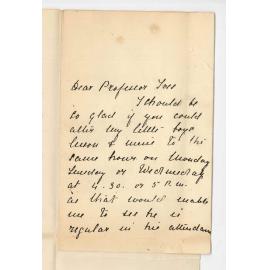 Dear Professor
I should be
so glad if you could
alter my little boys
lesson & mine to the
same hours on Monday
Tuesday or Wednesday
at 4.30. or 5 P.m.
as that would enable
me to see he is
regular in his attendan